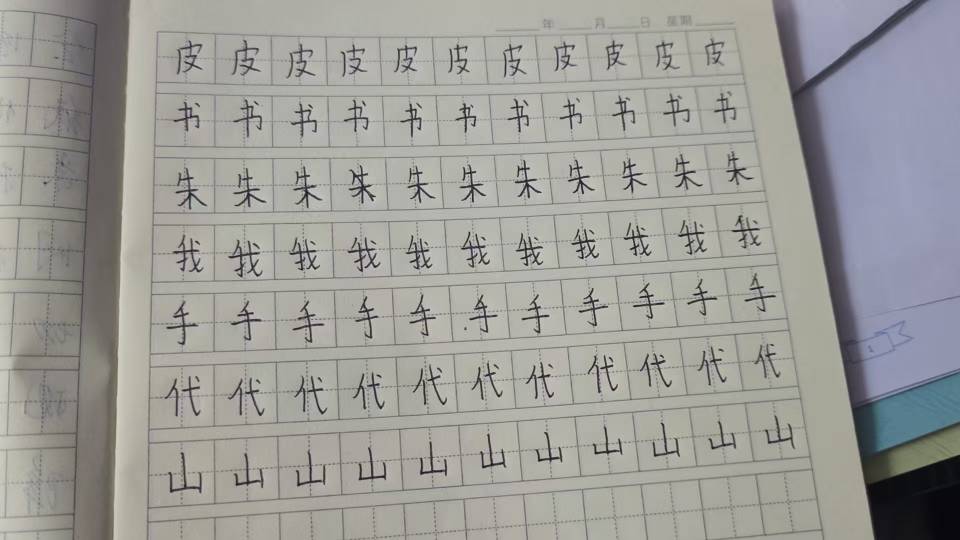 年 月 日 星期
皮 皮 皮 皮 皮 皮 皮 皮 皮 皮 皮
书 书 书 书 书 书 书 书 书 书 书
朱 朱 朱 朱 朱 朱 朱 朱 朱 朱 朱
我 我 我 我 我 我 我 我 我 我 我
手 手 手 手 手 手 手 手 手 手 手
代 代 代 代 代 代 代 代 代 代 代
山 山 山 山 山 山 山 山 山 山 山